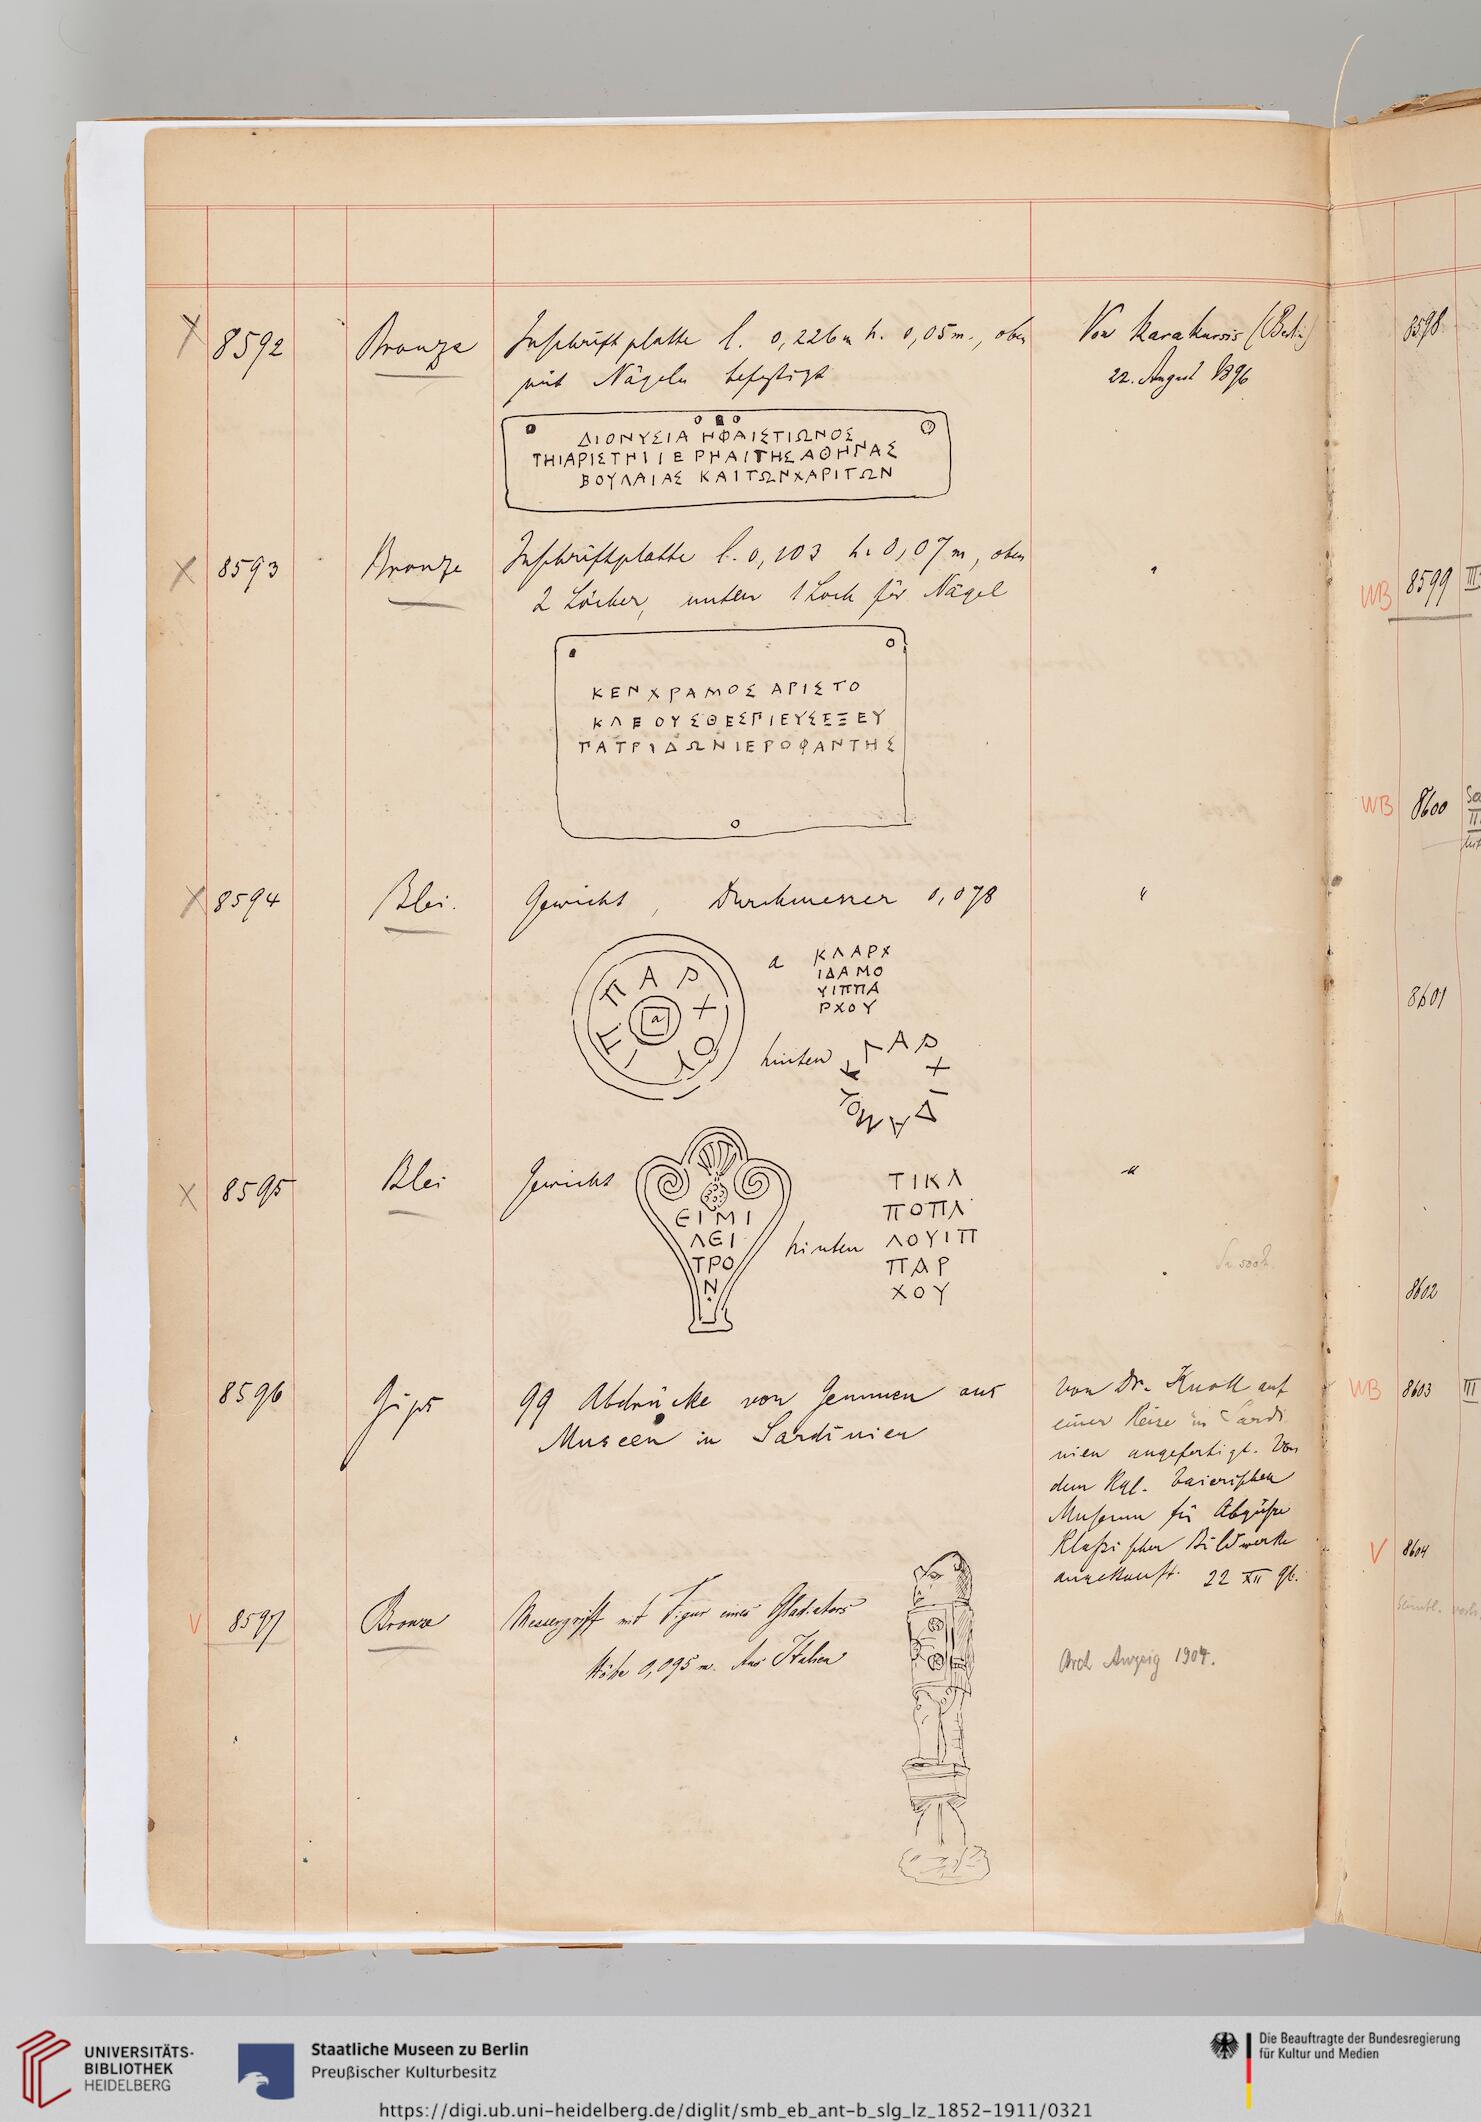 8592 Bronze Inschriftplatte l. 0,226m h. 0,05m., oben Von Karakursis (Berlin)
mit Nägeln befestigt 22. August 1896
ΔΙΟΝΥΣΙΑ ΗΦΑΙΣΤΙΩΝΟΣ
ΤΗΙΑΡΙΣΤΗΙΙΕΡΗΑΙΤΗΣΑΘΗΝΑΣ
ΒΟΥΛΑΙΑΣ ΚΑΙΤΩΝΧΑΡΙΤΩΝ
8593 Bronze Inschriftplatte l. 0,103 h. 0,07m, oben "
2 Löcher, unten 1 Loch für Nägel
ΚΕΝΧΡΑΜΟΣ ΑΡΙΣΤΟ
ΚΛΕΟΥΣΘΕΣΠΙΕΥΣΕΞΕΥ
ΠΑΤΡΙΔΩΝΙΕΡΟΦΑΝΤΗΣ
8594 Blei. Gewicht, Durchmesser 0,078 "
ΙΠΠΑΡΧΟΥ
a
a ΚΛΑΡΧ
ΙΔΑΜΟ
ΥΙΠΠΑ
ΡΧΟΥ
hinten ΚΛΑΡΧΙΔΑΜΟΥ
8595 Blei Gewicht "
ΕΙΜΙ
ΛΕΙ
ΤΡΟ
Ν
hinten ΤΙΚΛ
ΠΟΠΛ
ΛΟΥΙΠ
ΠΑΡ
ΧΟΥ
8596 Gips 99 Abdrücke von Gemmen aus
Museen in Sardinien
von Dr. Knoll auf
einer Reise in Sardi
nien angefertigt. Von
dem Kgl. baierischen
Museum für Abgüsse
Klassischer Bildwerke
angekauft. 22 XII 96.
V 8597 Bronze Messergriff mit Figur eines Gladiators
Höhe 0,095 m. Aus Italien
Arch Anzeig 1904.
8598
WB 8599 III
WB 8600
8601
8602
WB 8603 III
V 8604
UNIVERSITÄTS-
BIBLIOTHEK
HEIDELBERG
Staatliche Museen zu Berlin
Preußischer Kulturbesitz
Die Beauftragte der Bundesregierung
für Kultur und Medien
https://digi.ub.uni-heidelberg.de/diglit/smb_eb_ant-b_slg_lz_1852-1911/0321